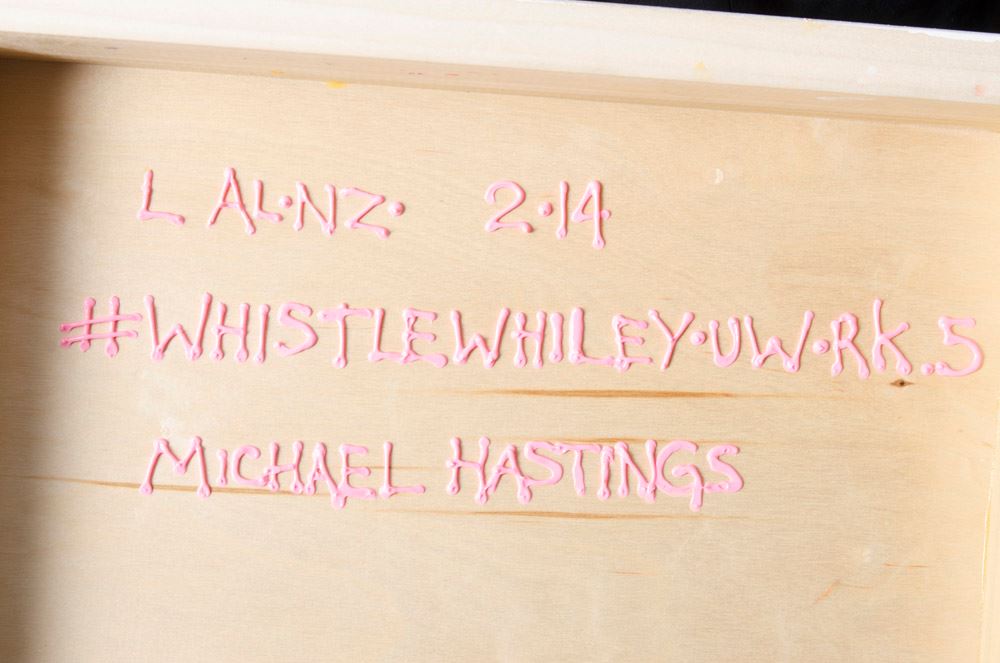 L AL·NZ· 2·14
#WHISTLEWHILEY·UW·RK.5
MICHAEL HASTINGS